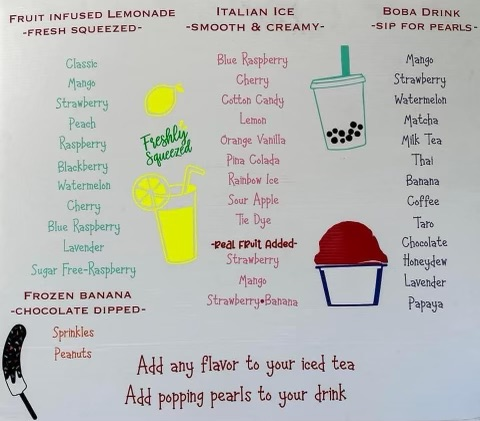 Fruit infused Lemonade
-fresh squeezed-
Classic
Mango
Strawberry
Peach
Raspberry
Blackberry
Watermelon
Cherry
Blue Raspberry
Lavender
Sugar Free-Raspberry
Freshly
Squeezed
Frozen banana
-chocolate dipped-
Sprinkles
Peanuts
Italian Ice
-smooth & creamy-
Blue Raspberry
Cherry
Cotton Candy
Lemon
Orange Vanilla
Pina Colada
Rainbow Ice
Sour Apple
Tie Dye
-Real Fruit Added-
Strawberry
Mango
Strawberry•Banana
Boba Drink
-sip for pearls-
Mango
Strawberry
Watermelon
Matcha
Milk Tea
Thai
Banana
Coffee
Taro
Chocolate
Honeydew
Lavender
Papaya
Add any flavor to your iced tea
Add popping pearls to your drink